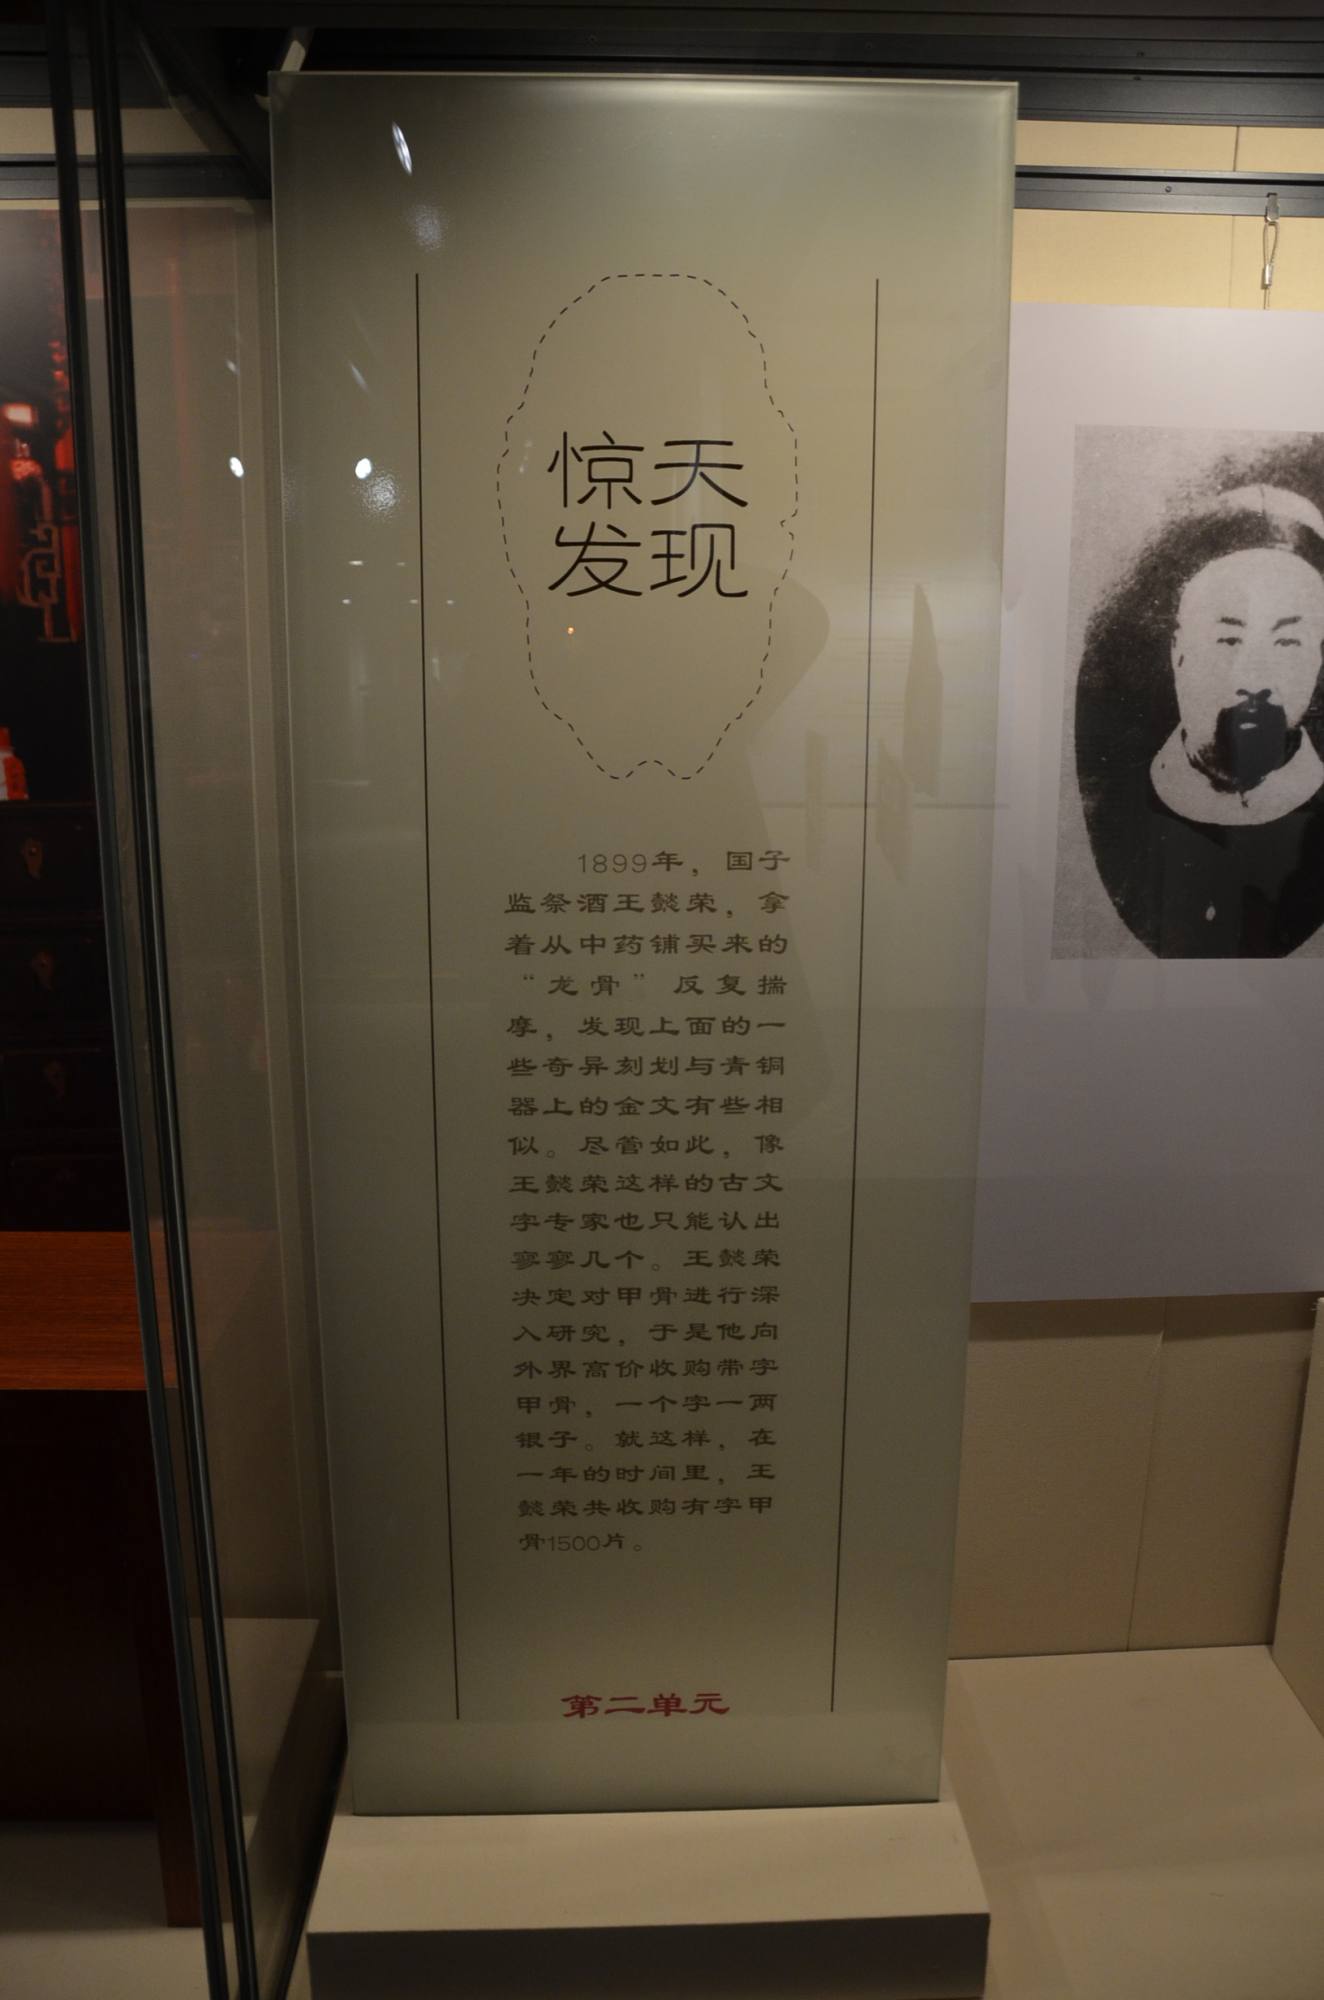 惊天
发现
1899年，国子
监祭酒王懿荣，拿
着从中药铺买来的
“龙骨”反复揣
摩，发现上面的一
些奇异刻划与青铜
器上的金文有些相
似。尽管如此，像
王懿荣这样的古文
字专家也只能认出
寥寥几个。王懿荣
决定对甲骨进行深
入研究，于是他向
外界高价收购带字
甲骨，一个字一两
银子。就这样，在
一年的时间里，王
懿荣共收购有字甲
骨1500片。
第二单元